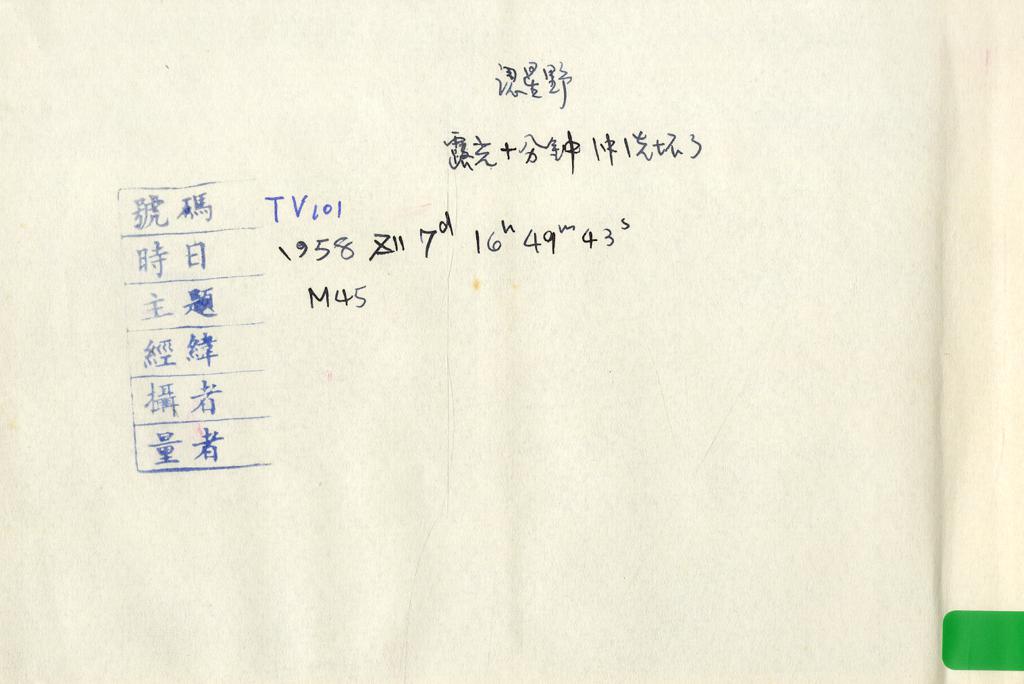 認星野
露光十分钟冲洗坏了
號碼 TV101
時日 1958 XII 7d 16h 49m 43s
主題 M45
經緯
攝者
量者